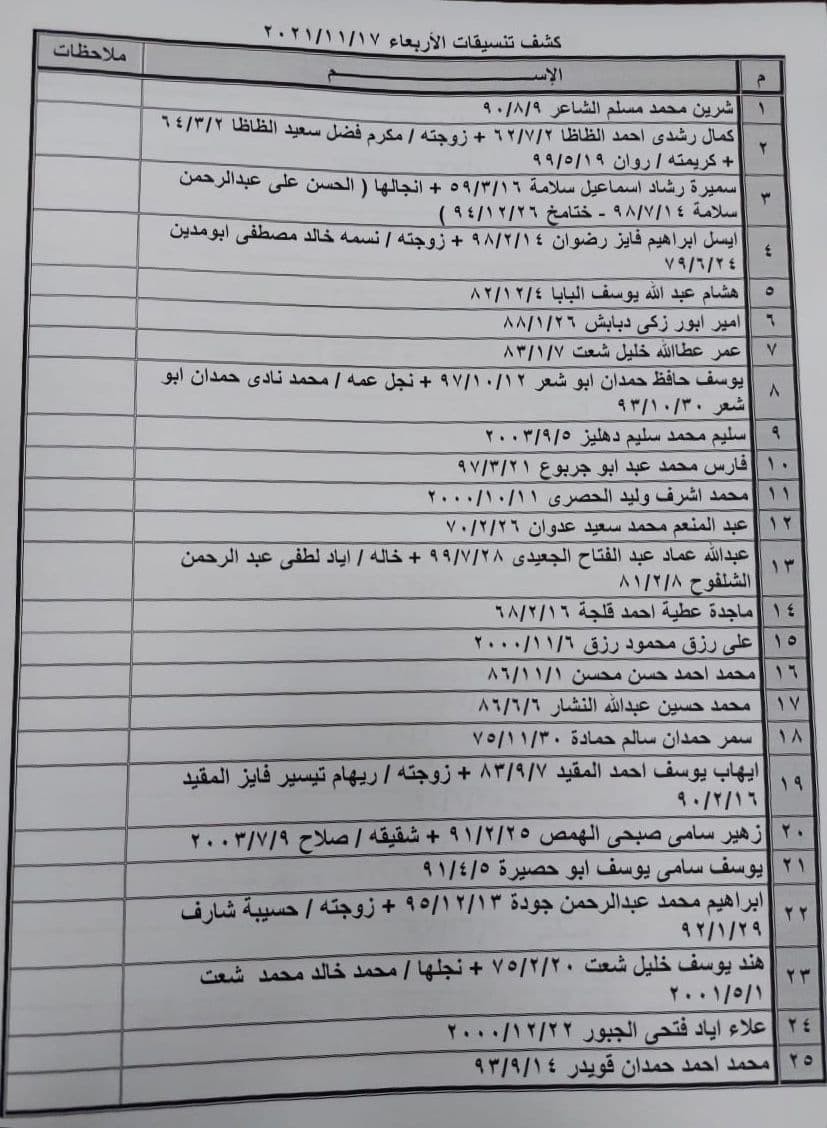 كشف تنسيقات الأربعاء ٢٠٢١/١١/١٧
م الإســـــم ملاحظات
١ شرين محمد مسلم الشاعر ٩٠/٨/٩
٢ كمال رشدى احمد الظاظا ٦٢/٧/٢ + زوجته / مكرم فضل سعيد الظاظا ٦٤/٣/٢
+ كريمته / روان ٩٩/٥/١٩
٣ سميرة رشاد اسماعيل سلامة ٥٩/٣/١٦ + انجالها ( الحسن على عبدالرحمن
سلامة ٩٨/٧/١٤ - ختامخ ٩٤/١٢/٢٦ )
٤ ايسل ابراهيم فايز رضوان ٩٨/٢/١٤ + زوجته / نسمه خالد مصطفى ابومدين
٧٩/٦/٢٤
٥ هشام عبد الله يوسف البابا ٨٢/١٢/٤
٦ امير ابور زكى دبابش ٨٨/١/٢٦
٧ عمر عطاالله خليل شعت ٨٣/١/٧
٨ يوسف حافظ حمدان ابو شعر ٩٧/١٠/١٢ + نجل عمه / محمد نادى حمدان ابو
شعر ٩٣/١٠/٣٠
٩ سليم محمد سليم دهليز ٢٠٠٣/٩/٥
١٠ فارس محمد عبد ابو جربوع ٩٧/٣/٢١
١١ محمد اشرف وليد الحصرى ٢٠٠٠/١٠/١١
١٢ عبد المنعم محمد سعيد عدوان ٧٠/٢/٢٦
١٣ عبدالله عماد عبد الفتاح الجعيدى ٩٩/٧/٢٨ + خاله / اياد لطفى عبد الرحمن
الشلفوح ٨١/٢/٨
١٤ ماجدة عطية احمد قلجة ٦٨/٢/١٦
١٥ على رزق محمود رزق ٢٠٠٠/١١/٦
١٦ محمد احمد حسن محسن ٨٦/١١/١
١٧ محمد حسين عبدالله النشار ٨٦/٦/٦
١٨ سمر حمدان سالم حمادة ٧٥/١١/٣٠
١٩ ايهاب يوسف احمد المقيد ٨٣/٩/٧ + زوجته / ريهام تيسير فايز المقيد
٩٠/٢/١٦
٢٠ زهير سامى صبحى الهمص ٩١/٢/٢٥ + شقيقه / صلاح ٢٠٠٣/٧/٩
٢١ يوسف سامى يوسف ابو حصيرة ٩١/٤/٥
٢٢ ابراهيم محمد عبدالرحمن جودة ٩٥/١٢/١٣ + زوجته / حسيبة شارف
٩٢/١/٢٩
٢٣ هند يوسف خليل شعت ٧٥/٢/٢٠ + نجلها / محمد خالد محمد شعت
٢٠٠١/٥/١
٢٤ علاء اياد فتحى الجبور ٢٠٠٠/١٢/٢٢
٢٥ محمد احمد حمدان قويدر ٩٣/٩/١٤